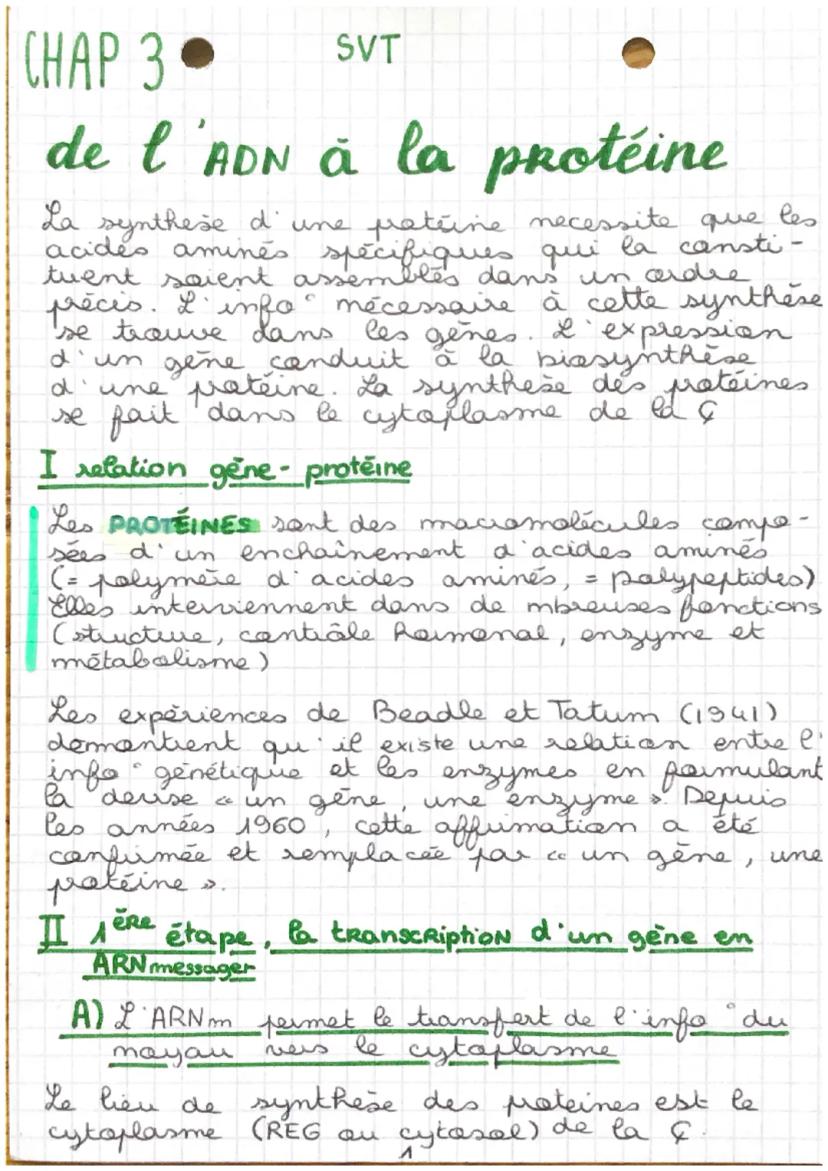 CHAP 3
SVT
de l'ADN à la protéine
La synthese d'une protéine necessite que les
acides aminés spécifiques qui la consti-
tuent soient assemblés dans un ordre
précis. L'info° nécessaire à cette synthèse
se trouve dans les gènes. L'expression
d'un gène conduit à la biosynthèse
d'une protéine. La synthese des protéines
se fait dans le cytoplasme de la Ç
I relation gène-protéine
Les PROTÉINES sont des macromolécules compo-
sées d'un enchaînement d'acides aminés
(= polymère d'acides aminés, = polypeptides)
Elles interviennent dans de nbreuses fonctions
(structure, contrôle hormonal, enzyme et
métabolisme)
Les expériences de Beadle et Tatum (1941)
demontrent qu'il existe une relation entre l'
info° génétique et les enzymes en formulant
la devise « un gène, une enzyme ». Depuis
les années 1960, cette affirmation a été
confirmée et remplacée par « un gène, une
protéine ».
II 1ÈRE étape, la transcription d'un gène en
ARN messager
A) L'ARNm permet le transfert de l'info° du
noyau vers le cytoplasme
Le lieu de synthèse des proteines est le
cytoplasme (REG ou cytosol) de la Ç.
1